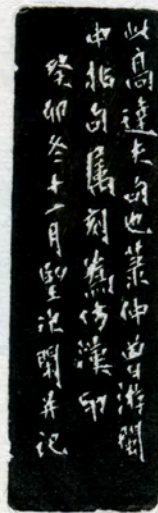 此高達夫句也葉仲曾游閩
中拈句属刻為仿漢印
癸卯冬十一月聖次閑并記